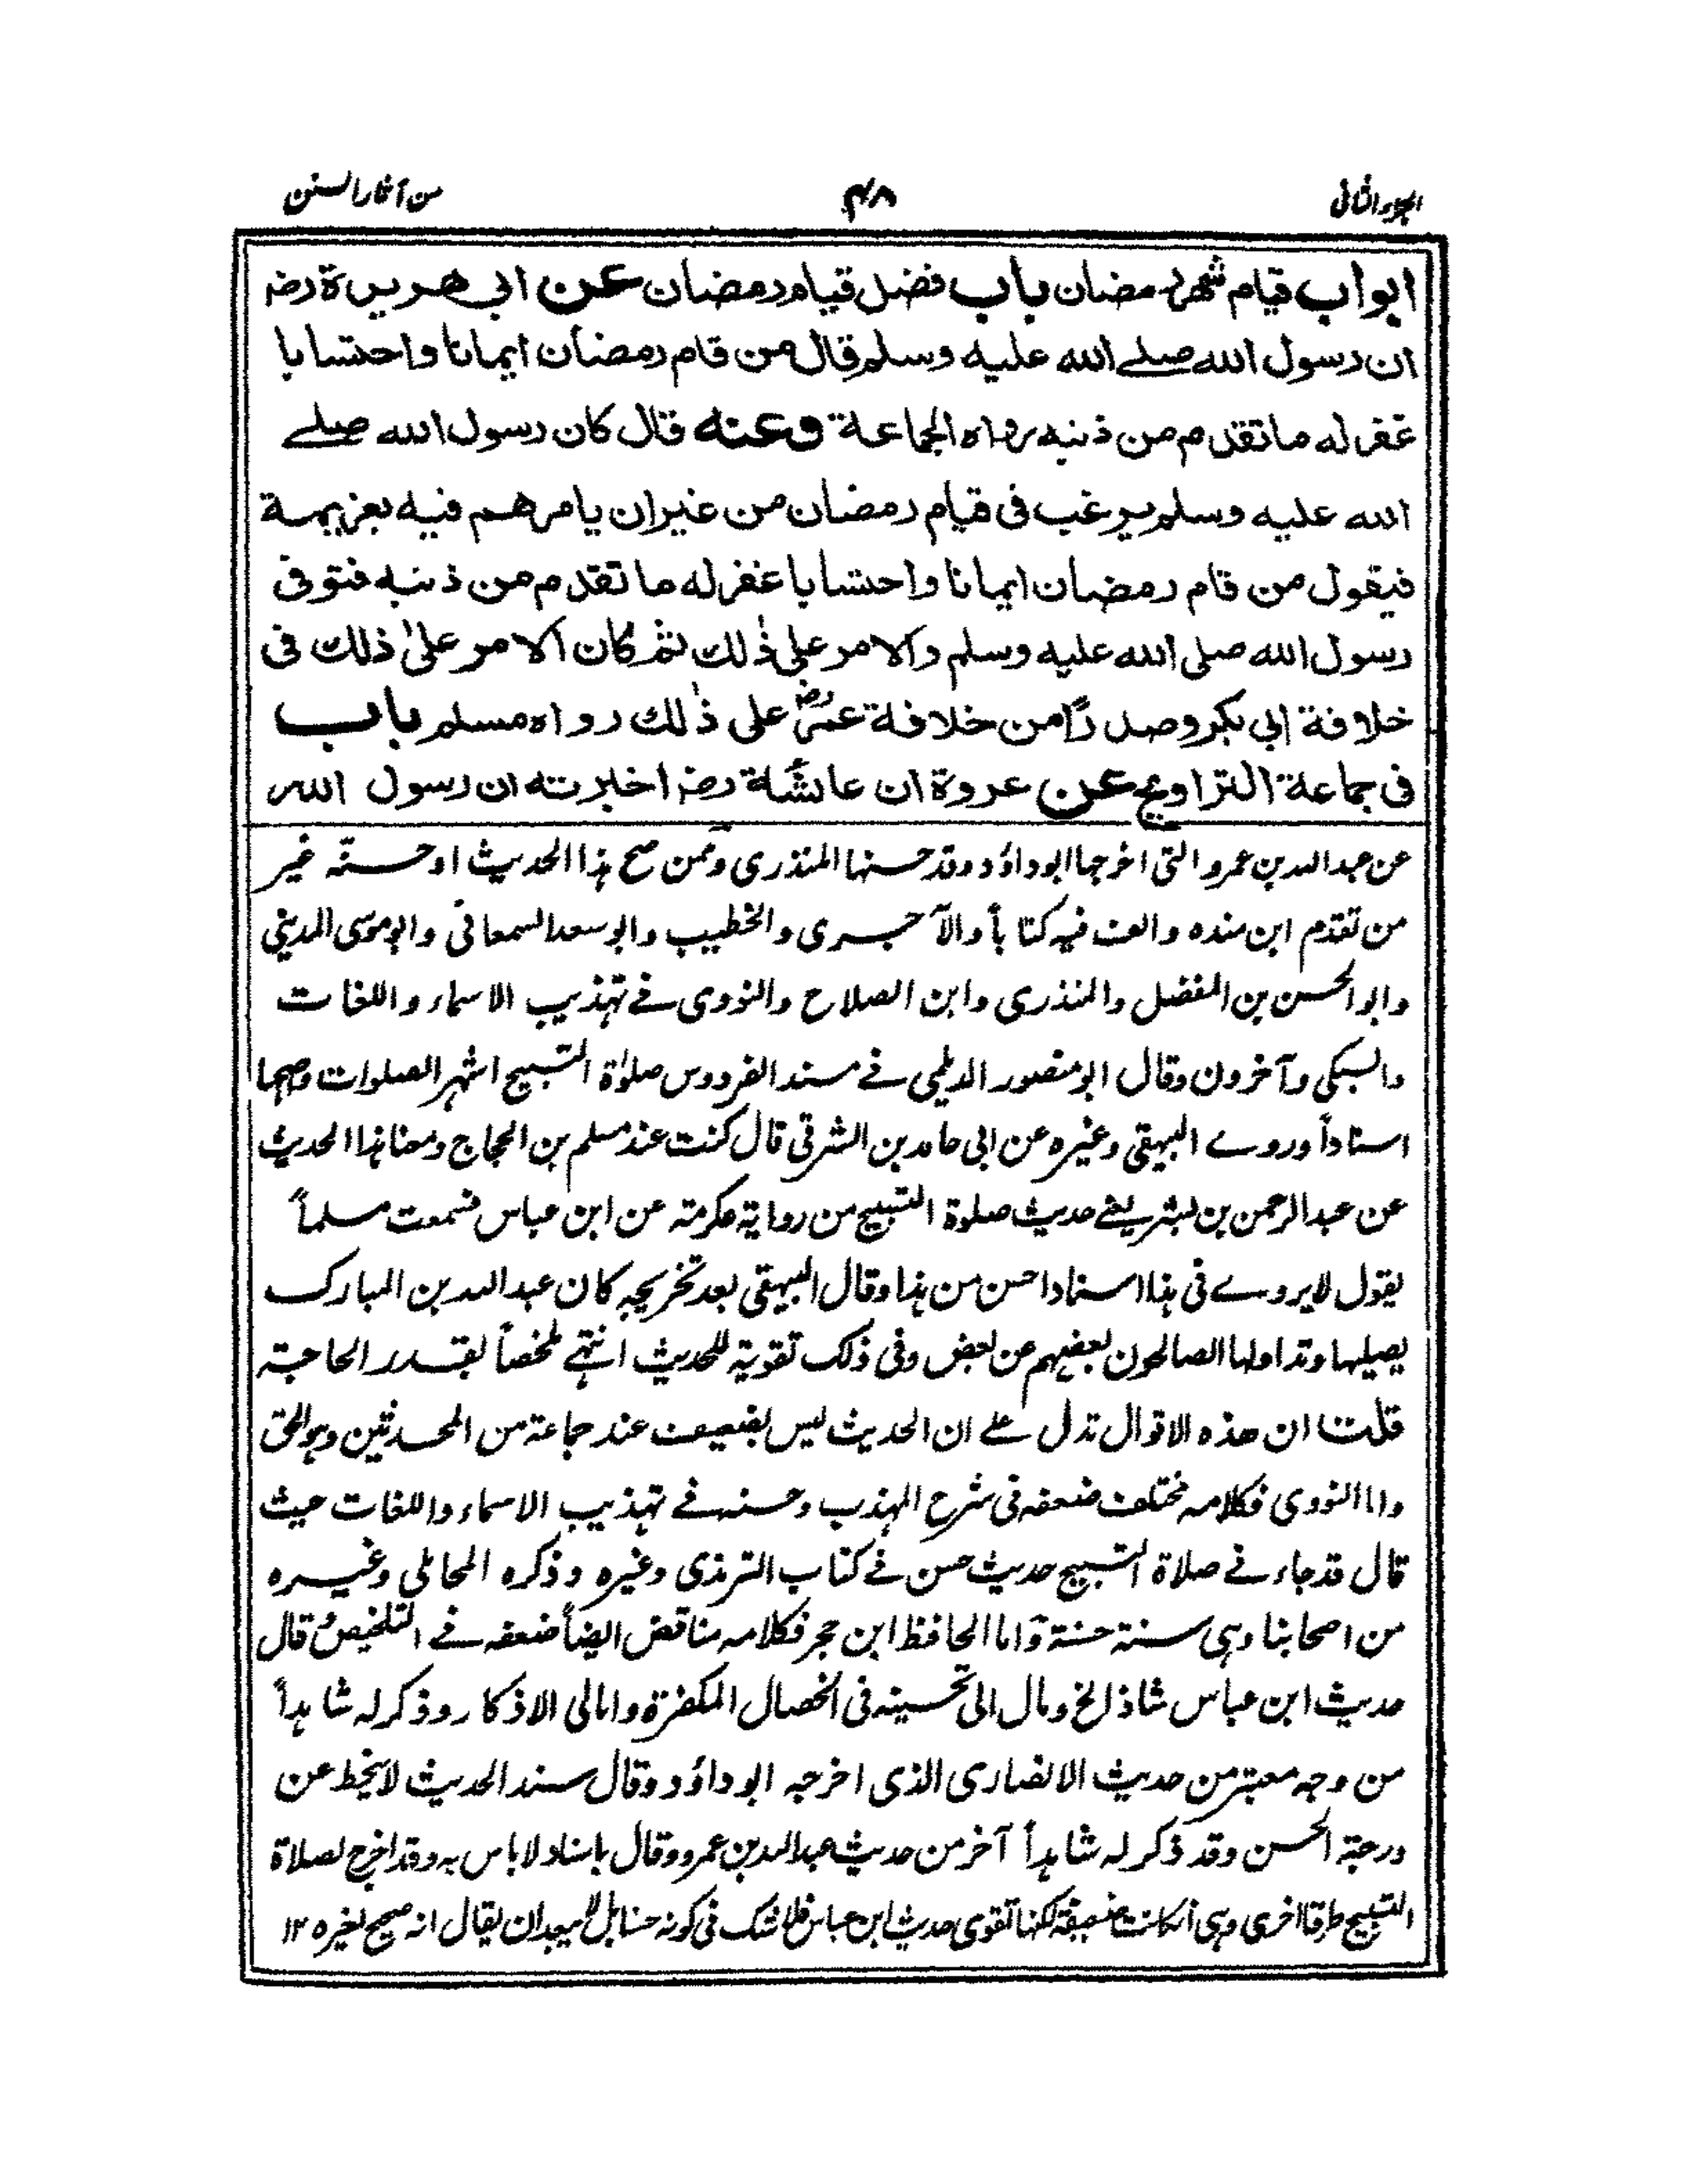 الجزء الثانى ۴۸ من آثار السنن
ابواب قيام شهر رمضان باب فضل قيام رمضان عن ابى هريرة رضـ
ان رسول الله صلے الله عليه وسلم قال من قام رمضان ايمانا واحتسابا
غفر له ما تقدم من ذنبه رواه الجماعة وعنه قال كان رسول الله صلے
الله عليه وسلم يرغب فى قيام رمضان من غير ان يامرهم فيه بعزيمة
فيقول من قام رمضان ايمانا واحتسابا غفر له ما تقدم من ذنبه فتوفى
رسول الله صلى الله عليه وسلم والامر على ذٰلك ثم كان الامر علىٰ ذلك فى
خلافة ابي بكر وصدرًا من خلافة عمرؓ على ذٰلك رواه مسلم باب
فى جماعة التراويح عن عروة ان عائشة رضـ اخبرته ان رسول الله
عن عبد الله بن عمرو التى اخرجها ابوداؤد وقد حسنها المنذرى وممن صحح هذا الحديث او حسنّه غير
من تقدم ابن منده والف فيه كتاباً والآجرى والخطيب وابو سعد السمعانى وابو موسى المدينى
وابو الحسن بن المفضل والمنذرى وابن الصلاح والنووى فے تهذيب الاسماء واللغات
والسبكى وآخرون وقال ابو منصور الديلمى فے مسند الفردوس صلوٰة التسبيح اشهر الصلوات واصحها
اسناداً وروے البيهقى وغيره عن ابى حامد بن الشرقى قال كنت عند مسلم بن الحجاج ومعنا هذا الحديث
عن عبد الرحمن بن بشر يعنے حديث صلوة التسبيح من رواية عكرمة عن ابن عباس فسمعت مسلماً
يقول لا يروے فى هذا اسنادا احسن من هذا وقال البيهقى بعد تخريجه كان عبد الله بن المبارك
يصليها وتداولها الصالحون بعضهم عن بعض وفى ذلك تقوية للحديث انتهے ملخصاً بقدر الحاجة
قلت ان هذه الاقوال تدل علے ان الحديث ليس بضعيف عند جماعة من المحدثين وهو الحق
واما النووى فكلامه مختلف ضعفه فى شرح المهذب وحسنه فے تهذيب الاسماء واللغات حيث
قال قد جاء فے صلاة التسبيح حديث حسن فے كتاب الترمذى وغيره وذكره المحاملى وغيره
من اصحابنا وهى سنة حسنة واما الحافظ ابن حجر فكلامه مناقض ايضاً ضعفه فے التلخيص وقال
حديث ابن عباس شاذ الخ ومال الى تحسينه فى الخصال المكفرة وامالى الاذكار وذكر له شاهداً
من وجه معتبر من حديث الانصارى الذى اخرجه ابوداؤد وقال سند الحديث لا ينحط عن
درجة الحسن وقد ذكر له شاهداً آخر من حديث عبد الله بن عمرو وقال باسناد لا باس به وقد اخرج لصلاة
التسبيح طرقا اخرى وهى ان كانت ضعيفة لكنها تقوى حديث ابن عباس فلا شك فى كونه حسنا بل لا يبعد ان يقال انه صحيح لغيره ۱۲